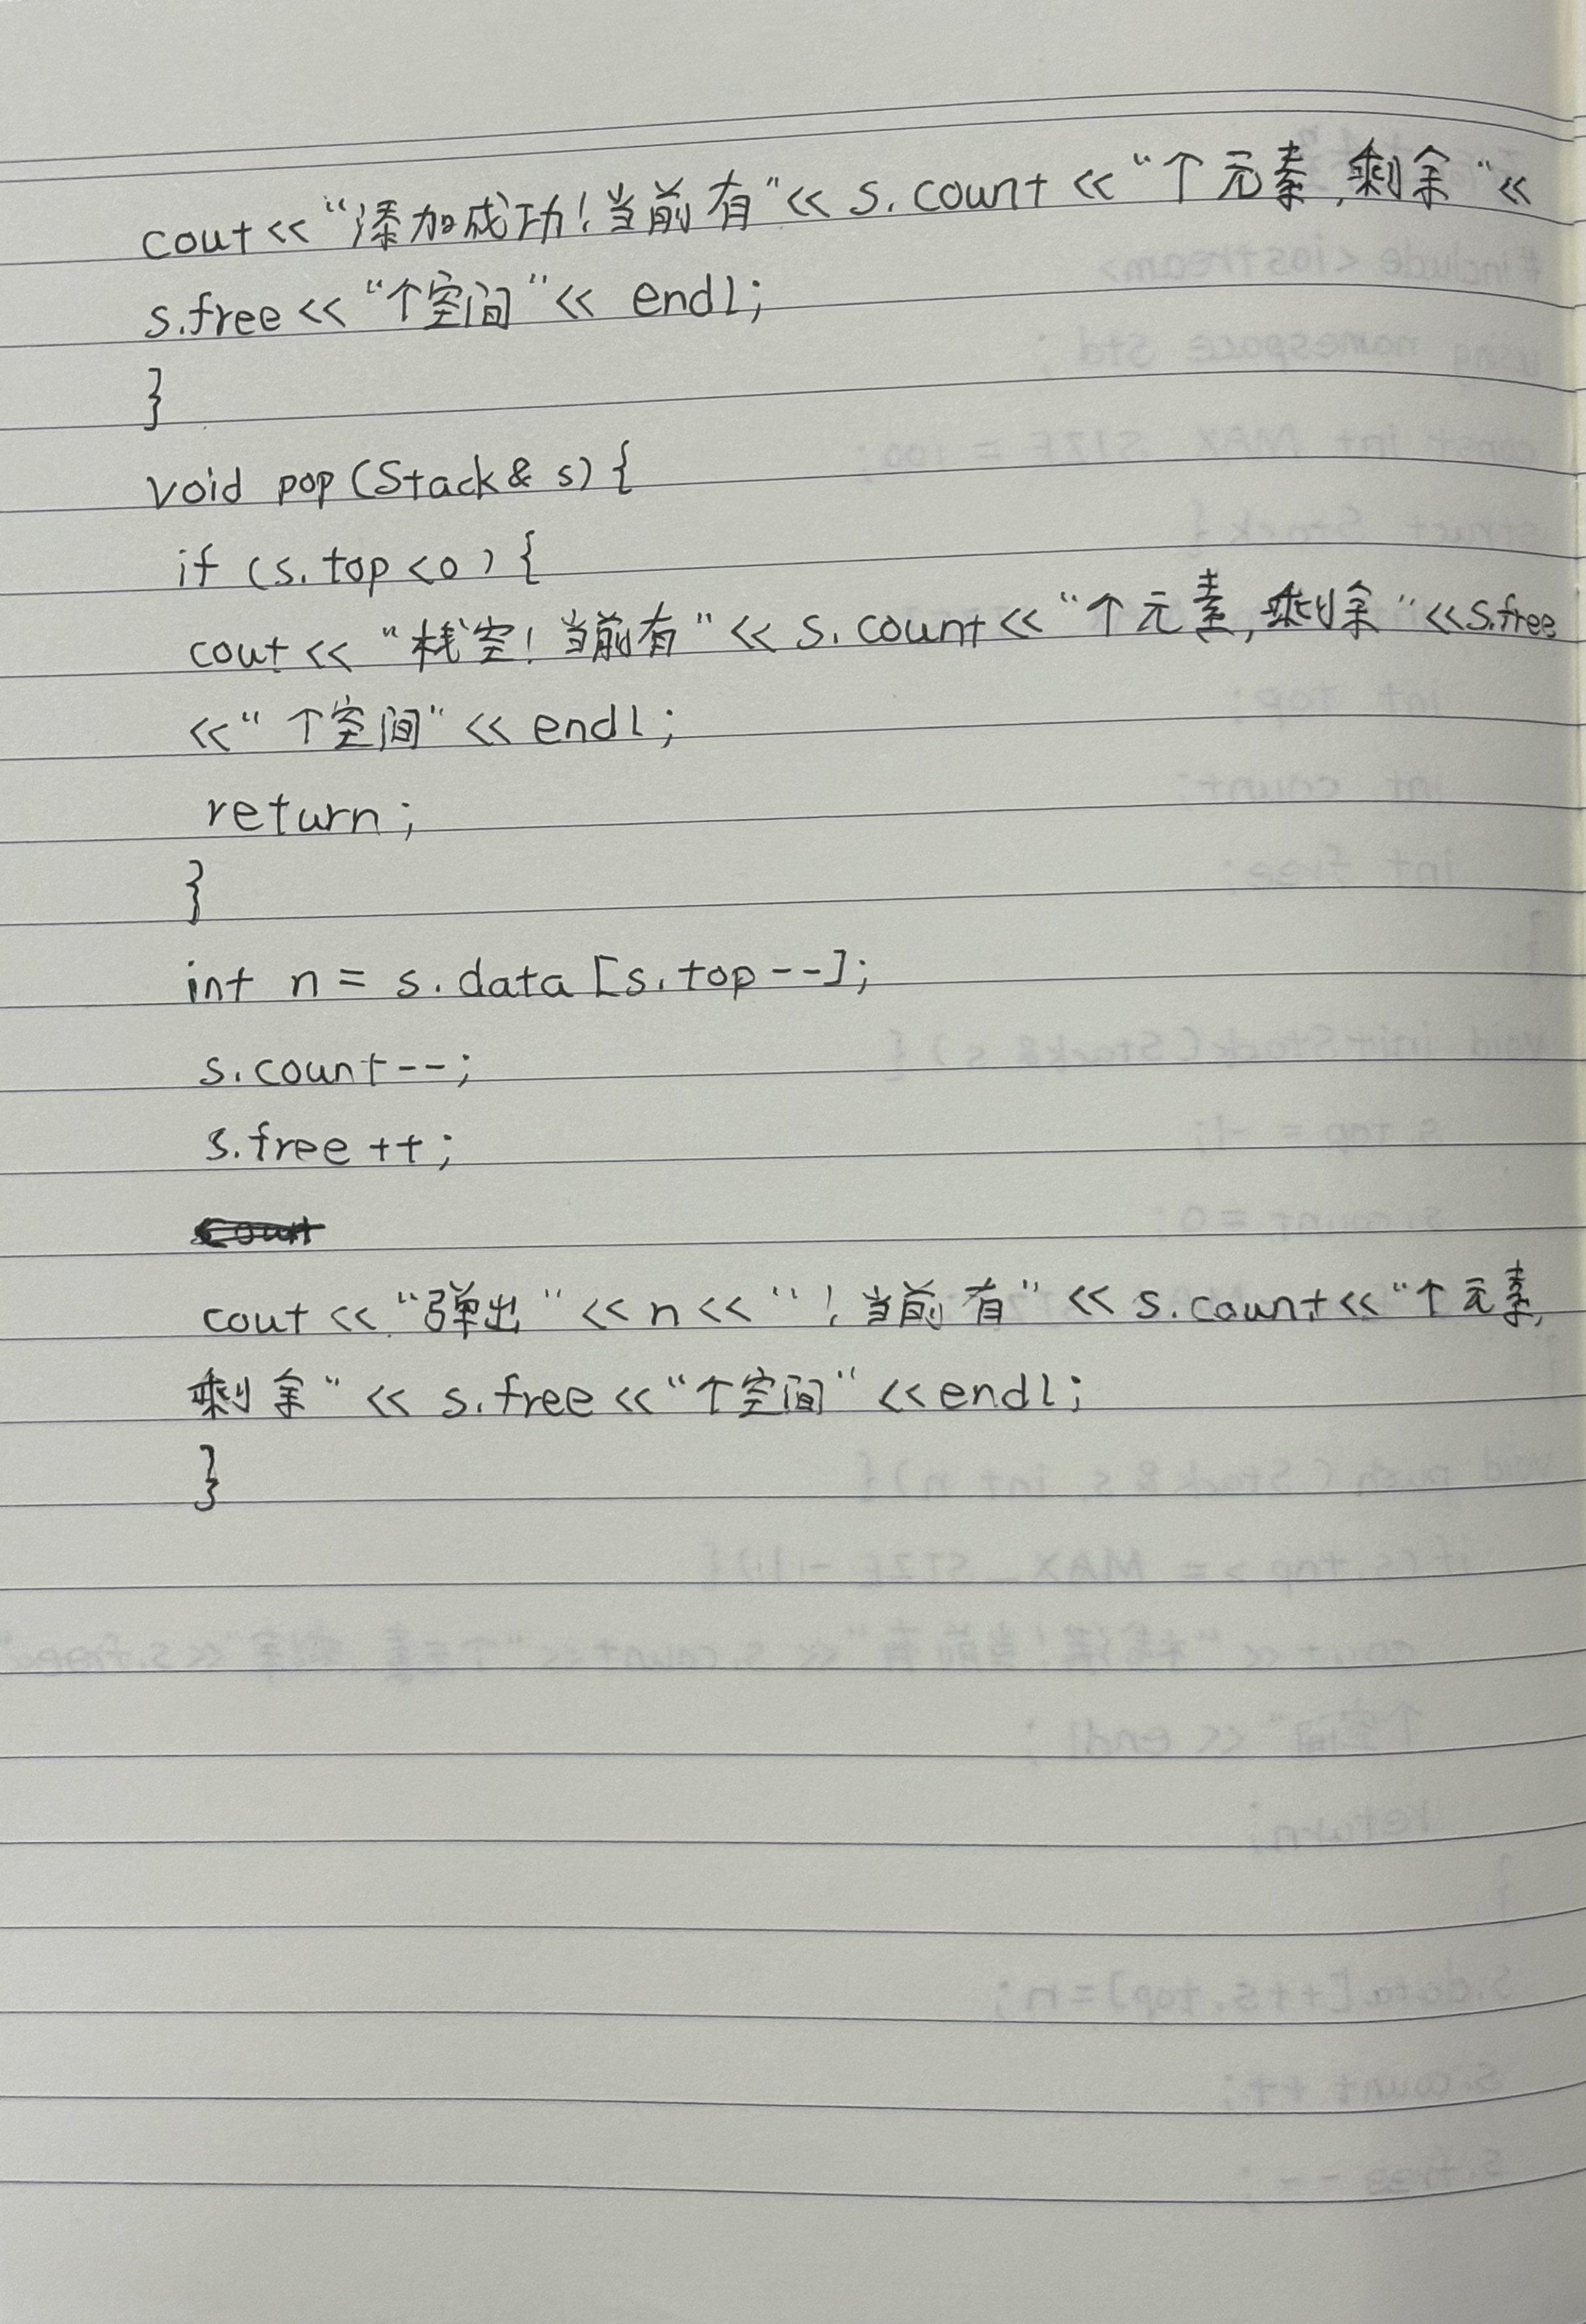 cout << "添加成功!当前有" << s.count << "个元素,剩余" <<
s.free << "个空间" << endl;
}
void pop(Stack& s){
if (s.top<0){
cout << "栈空!当前有" << s.count << "个元素,剩余" << s.free
<< "个空间" << endl;
return;
}
int n = s.data[s.top--];
s.count--;
s.free++;
cout << "弹出" << n << "!当前有" << s.count << "个元素,
剩余" << s.free << "个空间" << endl;
}